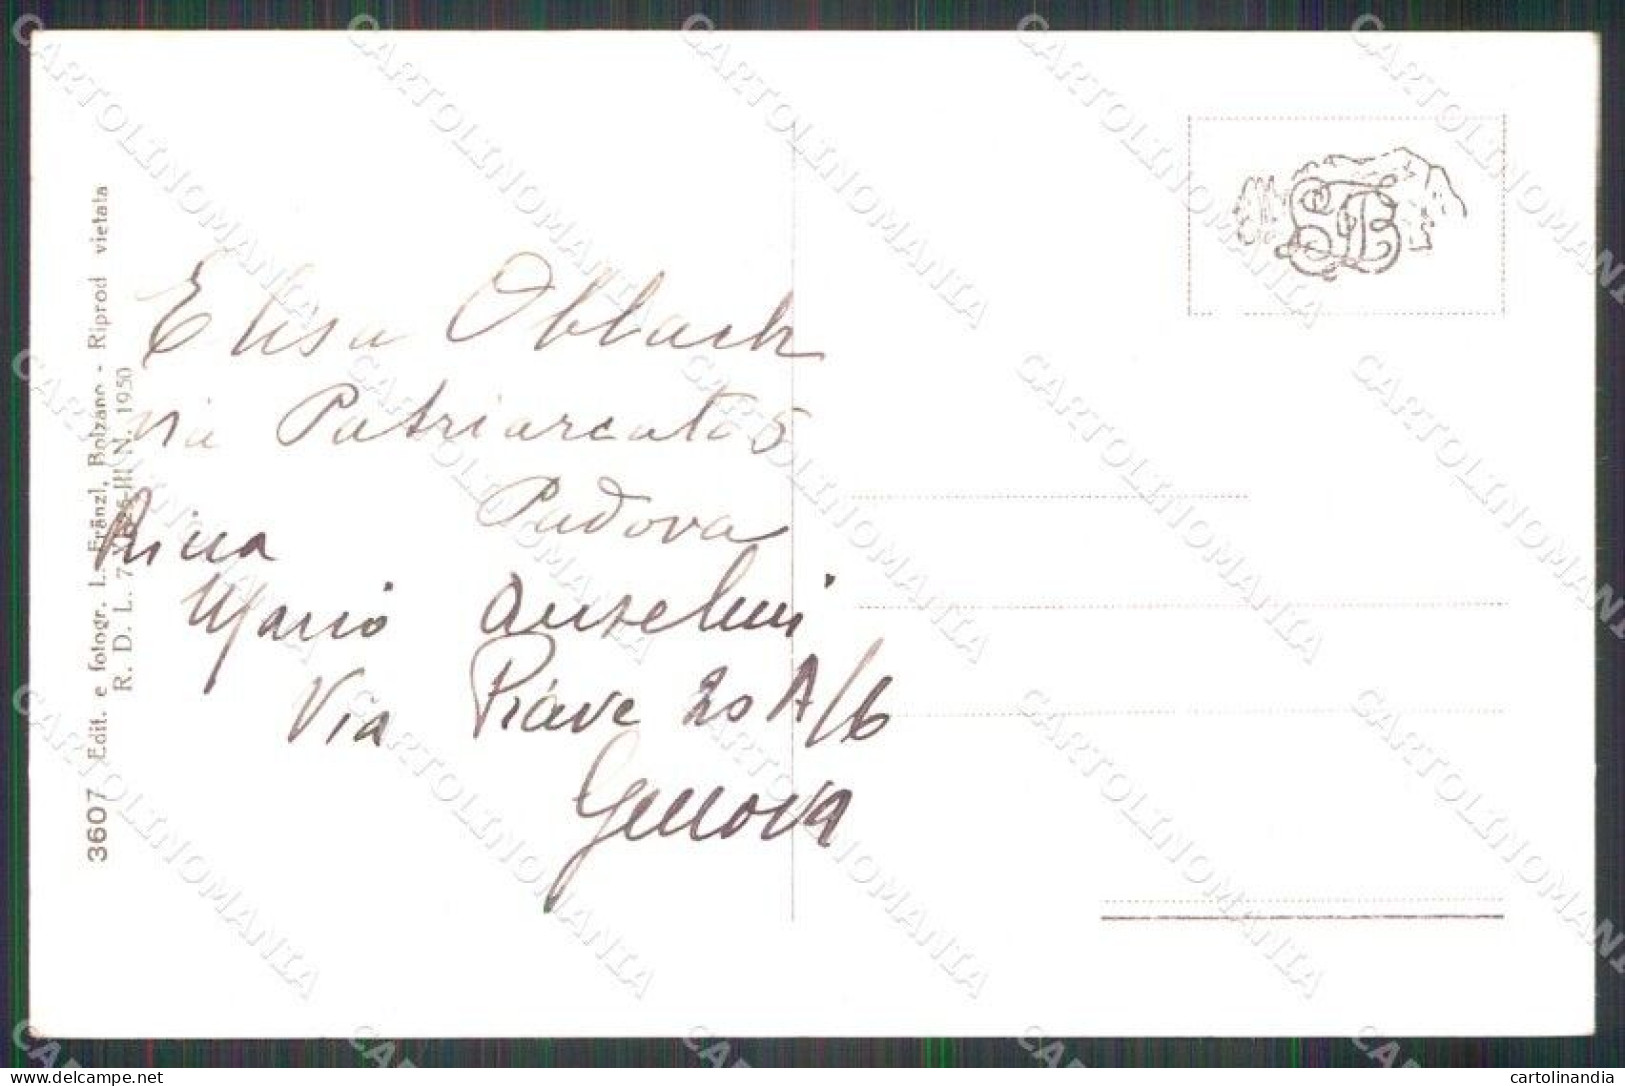 Elisa Oblach
via Patriarcato 5
Padova
Mario Anselmi
Via Piave 20 A/6
Genova
3607 Edit. e fotogr. L. Fränzl, Bolzano - Riprod vietata
R. D. L. 7 III N. 1950
CARTOLINOMANIA
cartolinandia